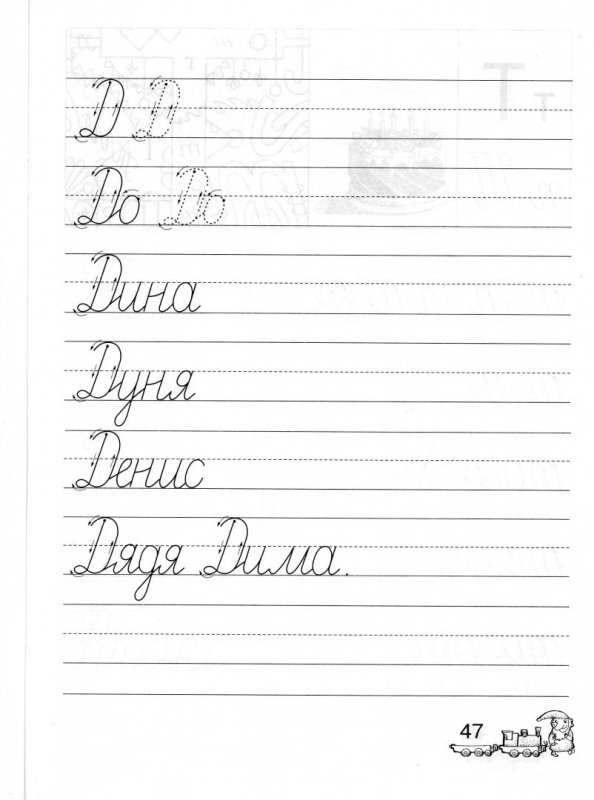 Д Д
До До
Дина
Дуня
Денис
Дядя Дима.
47